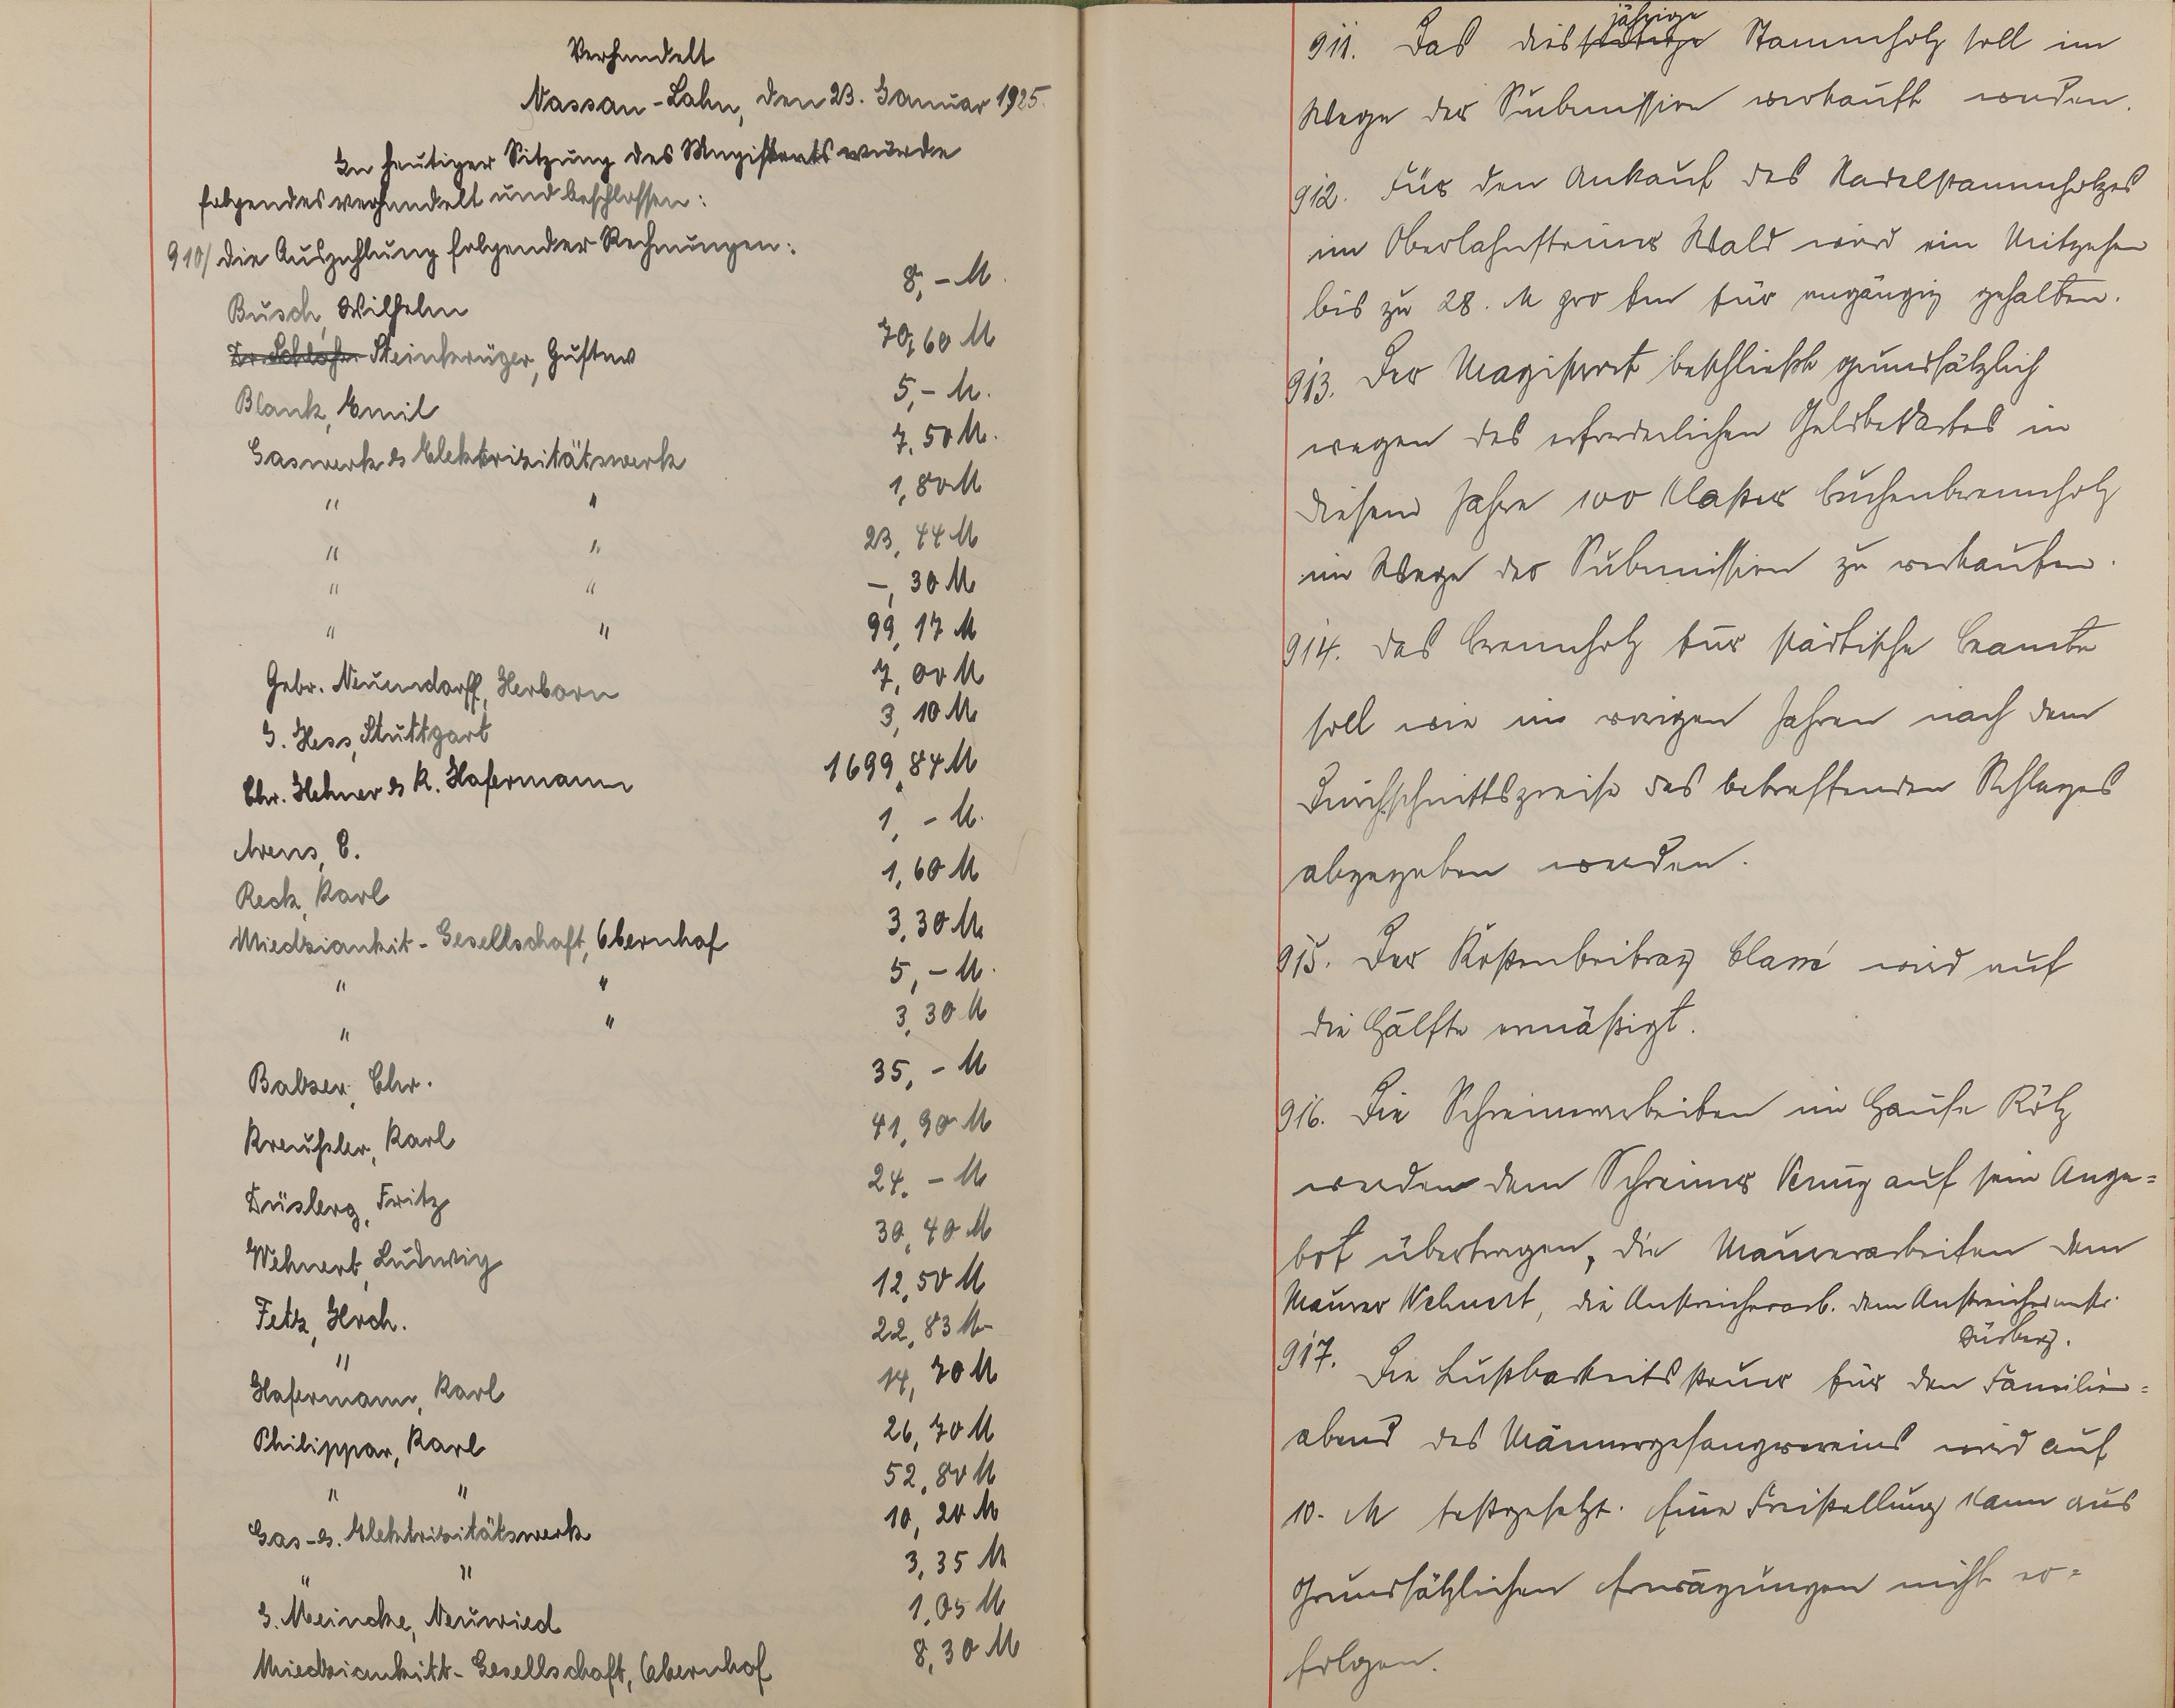 Verhandelt
Nassau-Lahn, den 23. Januar 1925.
In heutiger Sitzung des Magistrats wurde
folgendes verhandelt und beschlossen:
910/ die Auszahlung folgender Rechnungen:
Busch, Wilhelm 8,- M.
Steinkrüger, Gustav 70,60 M
Blank, Emil 5,- M.
Gaswerk & Elektrizitätswerk 7,50 M.
" " 1,80 M
" " 23,44 M
" " -,30 M
" " 99,17 M
Gebr. Neuendorff, Herborn 7,00 M
J. Hess, Stuttgart 3,10 M
Chr. Hehner & K. Hafermann 1699,84 M
Arens, C. 1,- M.
Reck, Karl 1,60 M
Miedziankit-Gesellschaft, Obernhof 3,30 M
" " 5,- M.
" " 3,30 M
Balzer, Chr. 35,- M
Kreußler, Karl 41,90 M
Düsberg, Fritz 24.- M
Wehnert, Ludwig 30,40 M
Fetz, Hrch. 12,50 M
" 22,83 M
Hafermann, Karl 14,70 M
Philippar, Karl 26,70 M
" " 52,80 M
Gas-&. Elektrizitätswerk 10,20 M
" " 3,35 M
J. Meincke, Neuwied 1,05 M
Miedziankitt-Gesellschaft, Obernhof 8,30 M
jährige
911. Das dies städtige Stammholz soll im
Wege der Submission verkauft werden.
912. Für den Ankauf des Nadelstammholzes
im Oberlahnsteiner Wald wird ein Mitgehen
bis zu 28. M pro fm für angängig gehalten.
913. Der Magistrat beschließt grundsätzlich
wegen des erforderlichen Geldbedarfes in
diesem Jahre 100 Klafter Buchenbrennholz
im Wege der Submission zu verkaufen.
914. Das Brennholz für städtische Beamte
soll wie in vorigen Jahren nach dem
Durchschnittspreise des betreffenden Schlages
abgegeben werden.
915. Der Kostenbeitrag wird auf
die Hälfte ermäßigt.
916. Die Schreinerarbeiten im Hause Rötz
werden dem Schreiner auf sein Ange=
bot übertragen, die Maurerarbeiten dem
Maurer Wehnert, die Anstreicherarb. dem Anstreichermstr.
Düsberg.
917. Die Lustbarkeitssteuer für den Familien=
abend des Männergesangvereins wird auf
10. M festgesetzt. Eine Freistellung kann aus
grundsätzlichen Erwägungen nicht er=
folgen.